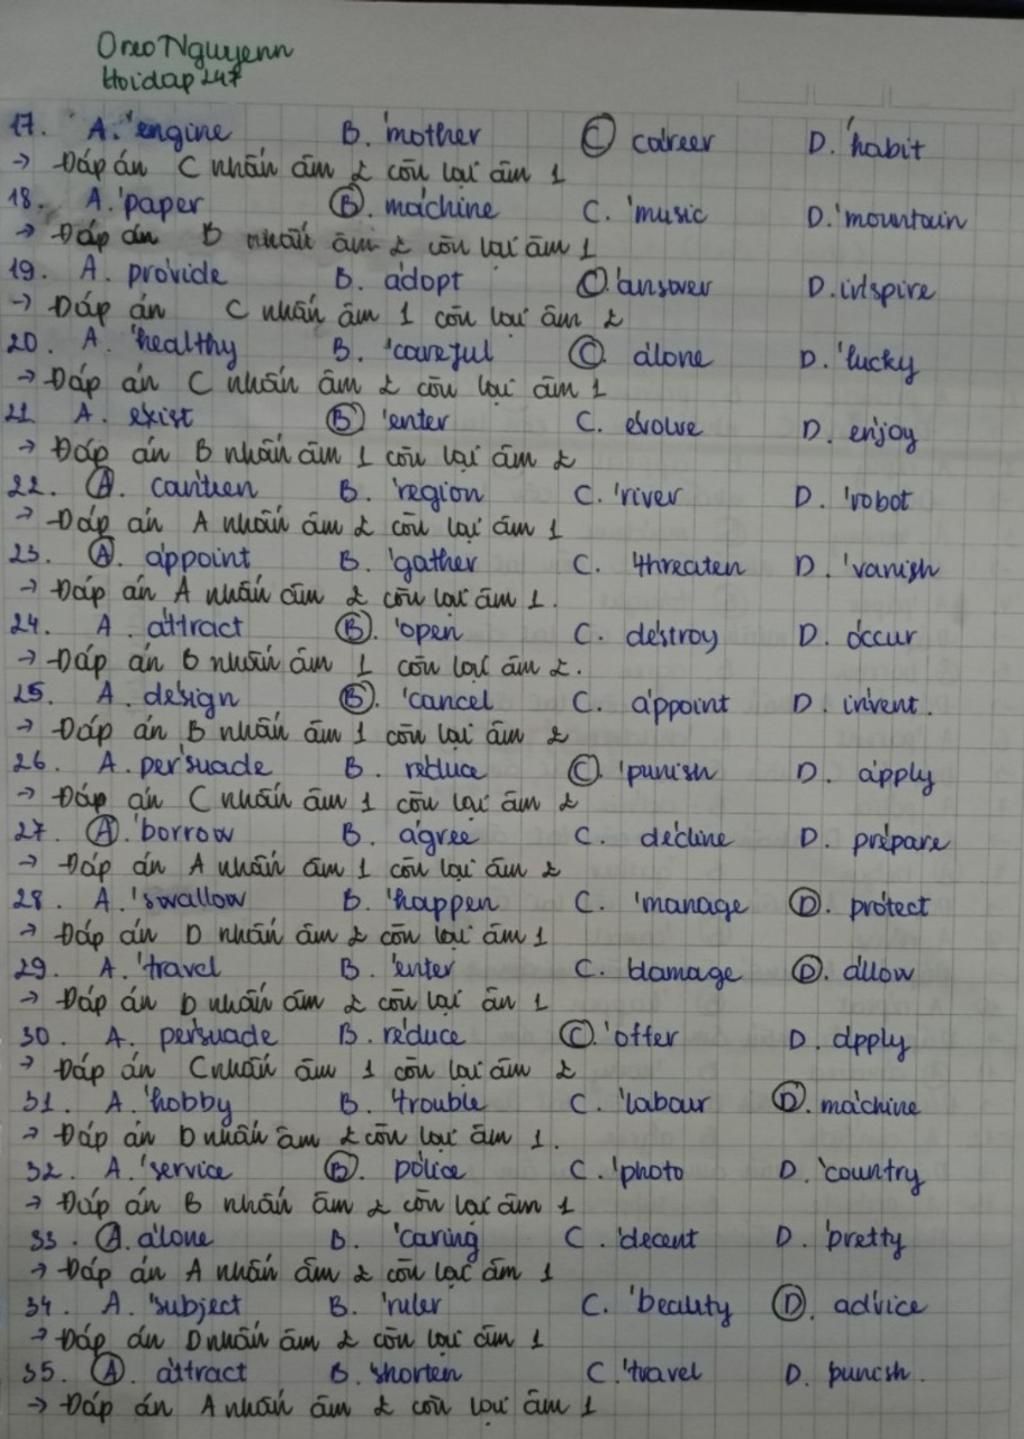 OreoNguyenn
Hoidap247
17. A. 'engine B. 'mother C. ca'reer D. 'habit
→ Đáp án C nhấn âm 2 còn lại âm 1
18. A. 'paper B. ma'chine C. 'music D. 'mountain
→ Đáp án B nhấn âm 2 còn lại âm 1
19. A. pro'vide B. a'dopt C. 'answer D. in'spire
→ Đáp án C nhấn âm 1 còn lại âm 2
20. A. 'healthy B. 'careful C. a'lone D. 'lucky
→ Đáp án C nhấn âm 2 còn lại âm 1
21 A. ex'ist B. 'enter C. e'volve D. en'joy
→ Đáp án B nhấn âm 1 còn lại âm 2
22. A. can'teen B. 'region C. 'river D. 'robot
→ Đáp án A nhấn âm 2 còn lại âm 1
23. A. a'ppoint B. 'gather C. 'threaten D. 'vanish
→ Đáp án A nhấn âm 2 còn lại âm 1.
24. A. a'ttract B. 'open C. de'stroy D. o'ccur
→ Đáp án B nhấn âm 1 còn lại âm 2.
25. A. de'sign B. 'cancel C. a'ppoint D. in'vent.
→ Đáp án B nhấn âm 1 còn lại âm 2
26. A. per'suade B. re'duce C. 'punish D. a'pply
→ Đáp án C nhấn âm 1 còn lại âm 2
27. A. 'borrow B. a'gree C. de'cline D. pre'pare
→ Đáp án A nhấn âm 1 còn lại âm 2
28. A. 'swallow B. 'happen C. 'manage D. pro'tect
→ Đáp án D nhấn âm 2 còn lại âm 1
29. A. 'travel B. 'enter C. 'damage D. a'llow
→ Đáp án D nhấn âm 2 còn lại ân 1
30. A. per'suade B. re'duce C. 'offer D. a'pply
→ Đáp án C nhấn âm 1 còn lại âm 2
31. A. 'hobby B. 'trouble C. 'labour D. ma'chine
→ Đáp án D nhấn âm 2 còn lại âm 1.
32. A. 'service B. po'lice C. 'photo D. 'country
→ Đáp án B nhấn âm 2 còn lại âm 1
33. A. a'lone B. 'caring C. 'decent D. 'pretty
→ Đáp án A nhấn âm 2 còn lại âm 1
34. A. 'subject B. 'ruler C. 'beauty D. ad'vice
→ Đáp án D nhấn âm 2 còn lại âm 1
35. A. a'ttract B. 'shorten C. 'travel D. punish.
→ Đáp án A nhấn âm 2 còn lại âm 1